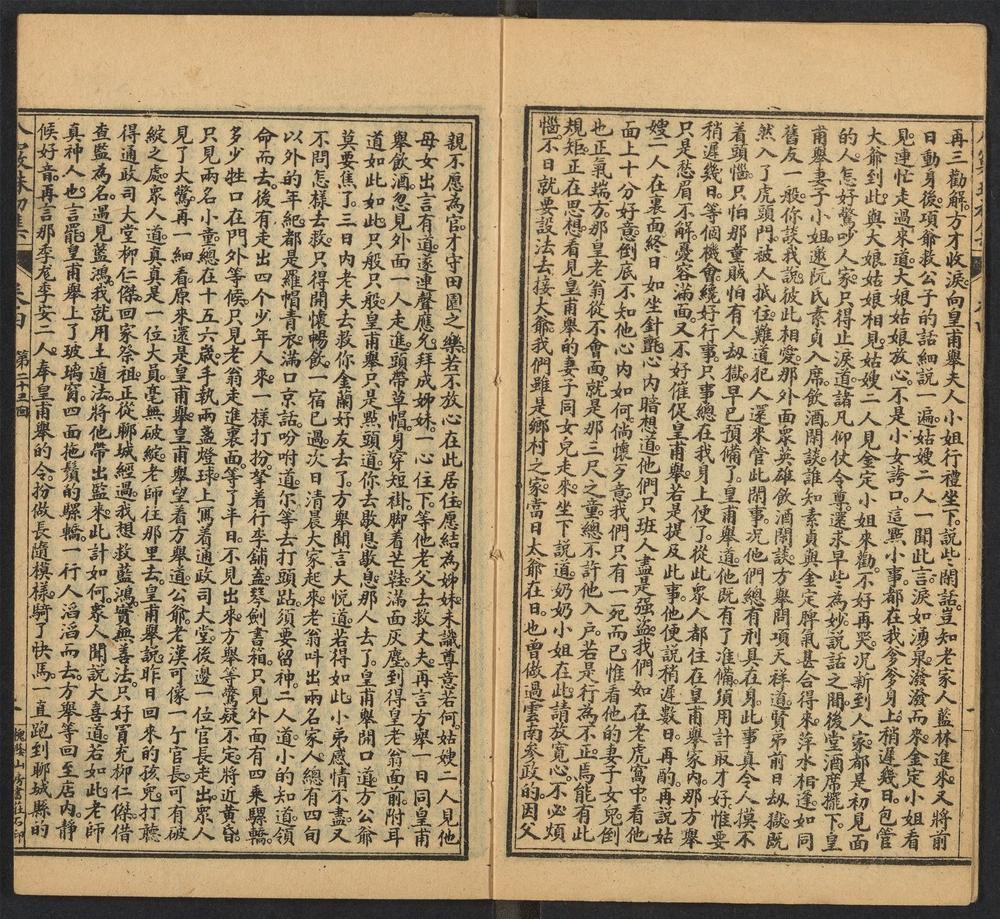 再三勸解方才收淚向皇甫舉夫人小姐行禮坐下說些閒話豈知老家人藍林進來又將前
日動身後項爺救公子的話細説一遍姑嫂二人一聞此言淚如湧泉潑潑而來金定小姐看
見連忙走過來道大娘姑娘放心不是小女誇口這點小事都在我爹爹身上稍遲幾日包管
大爺到此與大娘姑娘相見姑嫂二人見金定小姐來勸不好再哭況新到人家都是初見面
的人怎好驚吵人家只得止淚道諸凡仰仗令尊還求早些為妙說話之間後堂酒席擺下皇
甫舉妻子小姐邀阮氏素貞入席飲酒閑談誰知素貞與金定脾氣甚合得來萍水相逢如同
舊友一般你談我說彼此相愛那外面眾英雄飲酒閒談方舉問項天祥道賢弟前日劫獄既
然入了虎頭門被人抵住難道犯人還來管此閒事況他們總有刑具在身此事真令人摸不
着頭惱只怕那童賊怕有人劫獄早已預備了皇甫舉道他既有了准備須用計取才好惟要
稍遲幾日等個機會纔好行事只事總在我身上便了從此眾人都住在皇甫舉家内那方舉
只是愁眉不解憂容滿面又不好催促皇甫舉若是提及此事他便說稍遲數日再酌再說姑
嫂二人在裏面終日如坐針氈心内暗想道他們只班人盡是強盜我們如在老虎窩中看他
面上十分好意倒底不知他心内如何倘懷歹意我們只有一死而已惟看他的妻子女兒倒
也正氣端方那皇老翁從不會面就是那三尺之童總不許他入戸若是行為不正焉能有此
規矩正在思想看見皇甫舉的妻子同女兒走來坐下説道奶奶小姐在此請放寬心不必煩
惱不日就要設法去接大爺我們雖是鄉村之家當日太爺在日也曾做過雲南參政的因父
親不愿為官才守田園之樂若不放心在此居住愿結為姊妹未識尊意若何姑嫂二人見他
母女出言有道遂連聲應允拜成姊妹一心住下等他老父去救丈夫再言方舉一日同皇甫
舉飲酒忽見外面一人走進頭帶草帽身穿短褂脚看芒鞋滿面灰塵到得皇老翁面前附耳
道如此如此只般只般皇甫舉只是點頭道你去歇息歇息那人去了皇甫舉開口道方公爺
莫要焦了三日内老夫去救你金蘭好友去了方舉聞言大悅道若得如此小弟感情不盡又
不問怎樣去救只得開懷暢飲一宿已過次日清晨大家起來老翁叫出兩名家人總有四旬
以外的年紀都是羅帽青衣滿口京話吩咐道尔等去打頭跕須要留神二人道小的知道領
命而去後有走出四个少年人來一樣打扮拏着行李鋪盖琴劍書箱只見外面有四乘騾轎
多少牲口在門外等候只見老翁走進裏面等了半日不見出來方舉等驚疑不定將近黄昏
只見兩名小童總在十五六歲手執兩盞燈球上寫着通政司大堂後邊一位官長走出眾人
見了大驚再一細看原來還是皇甫舉皇甫舉望着方舉道公爺老漢可像一个官長可有破
綻之處眾人道真真是一位大員毫無破綻老師往那里去皇甫舉說昨日回來的孩兒打聽
得通政司大堂柳仁傑回家祭祖正從聊城經過我想救藍鴻實無善法只好冒充柳仁傑借
查監為名遇見藍鴻我就用土遁法將他帶出監來此計如何眾人聞說大喜道若如此老師
真神人也言罷皇甫舉上了玻璃窗四面拖鬚的騾轎一行人滔滔而去方舉等回至店内静
候好音再言那季尨李安二人奉皇甫舉的令扮做長隨模樣騎了快馬一直跑到聊城縣的
第二十五回